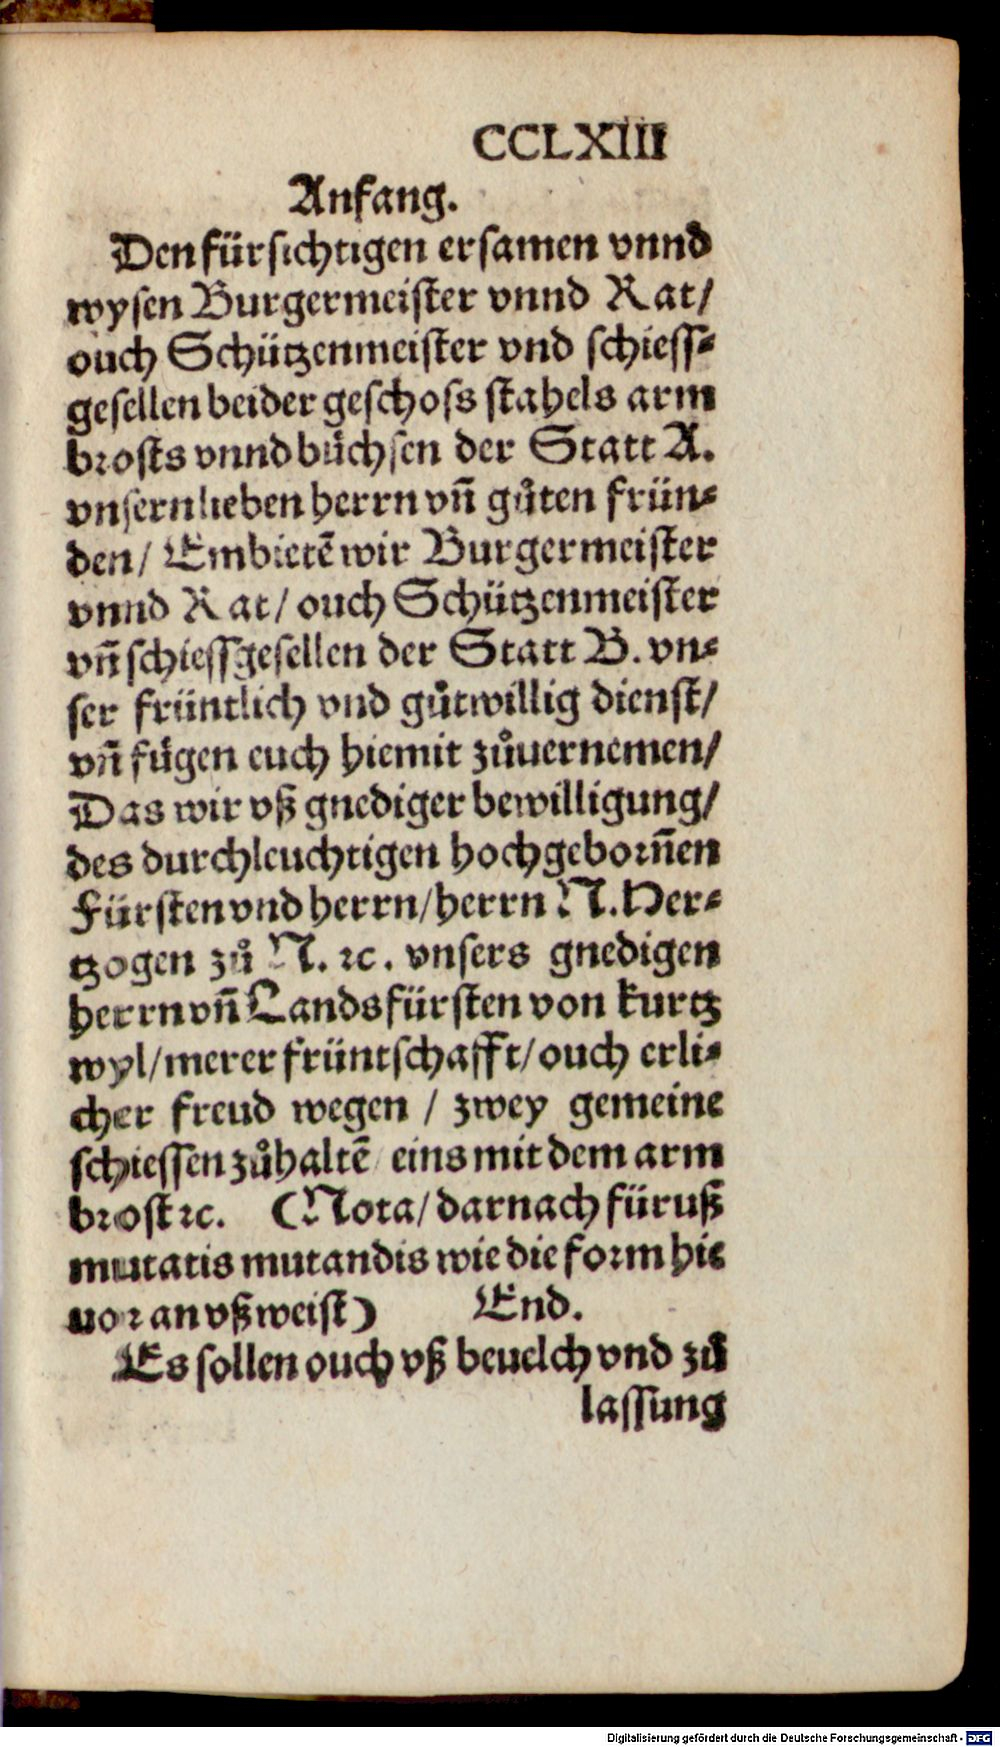 CCLXIII
Anfang.
Den fürsichtigen ersamen vnnd
wysen Burgermeister vnnd Rat/
ouch Schützenmeister vnd schiess⸗
gesellen beider geschoss stahels arm
brosts vnnd büchsen der Statt A.
vnsern lieben herrn vñ gůten frün⸗
den/ Embietẽ wir Burgermeister
vnnd Rat/ ouch Schützenmeister
vñ schiessgesellen der Statt B. vn⸗
ser früntlich vnd gůtwillig dienst/
vñ fügen euch hiemit zůuernemen/
Das wir vß gnediger bewilligung/
des durchleuchtigen hochgebornẽn
Fürsten vnd herrn/herrn N. Her⸗
tzogen zů N. ꝛc. vnsers gnedigen
herrn vñ Landsfürsten von kurtz
wyl/merer früntschafft/ouch erli⸗
cher freud wegen / zwey gemeine
schiessen zůhaltẽ eins mit dem arm
brost ꝛc. (Nota/darnach füruß
mutatis mutandis wie die form hie
uor an vßweist) End.
Es sollen ouch vß beuelch vnd zů
lassung
Digitalisierung gefördert durch die Deutsche Forschungsgemeinschaft - DFG